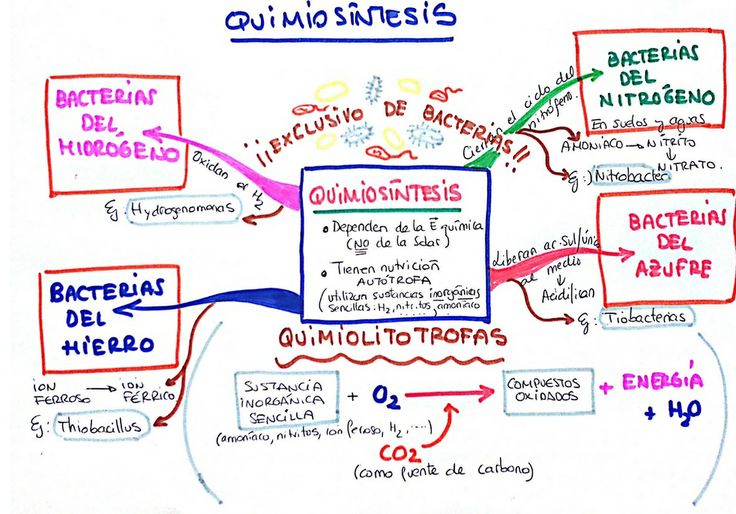 QUIMIOSÍNTESIS
¡¡EXCLUSIVO DE BACTERIAS!!
BACTERIAS
DEL
HIDRÓGENO
Oxidan el H2
Ej: Hydrogenomonas
Cierran el ciclo del
nitrógeno.
BACTERIAS
DEL
NITRÓGENO
En suelos y aguas
AMONIACO → NITRITO
↓
NITRATO.
Ej:) Nitrobacter
QUIMIOSÍNTESIS
• Dependen de la E química
(NO de la Solar)
• Tienen nutrición
AUTÓTROFA
(utilizan sustancias inorgánicas
sencillas: H2, nitritos, amoniaco)
BACTERIAS
DEL
AZUFRE
Liberan ac. sulfúrico
al medio
↓
Acidifican
Ej: Tiobacterias
BACTERIAS
DEL
HIERRO
ION FERROSO → ION FÉRRICO
Ej: Thiobacillus
QUIMIOLITOTROFAS
SUSTANCIA
INORGÁNICA
SENCILLA
+ O2 →
COMPUESTOS
OXIDADOS
+ ENERGÍA
+ H2O
(amoniaco, nitritos, ion ferroso, H2, ....)
CO2
(como fuente de carbono)